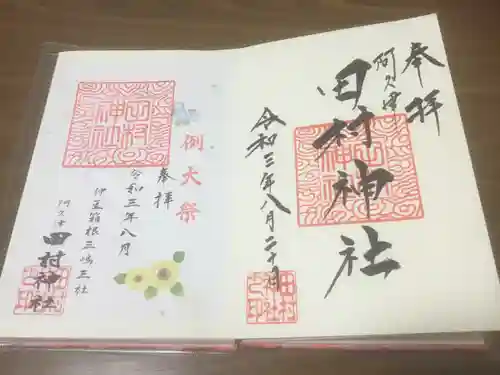 奉拝
阿久津
田村神社
令和三年八月二十日
田村神社
例大祭
奉拝
令和三年八月
伊豆箱根三嶋三社
阿久津
田村神社
田村神社